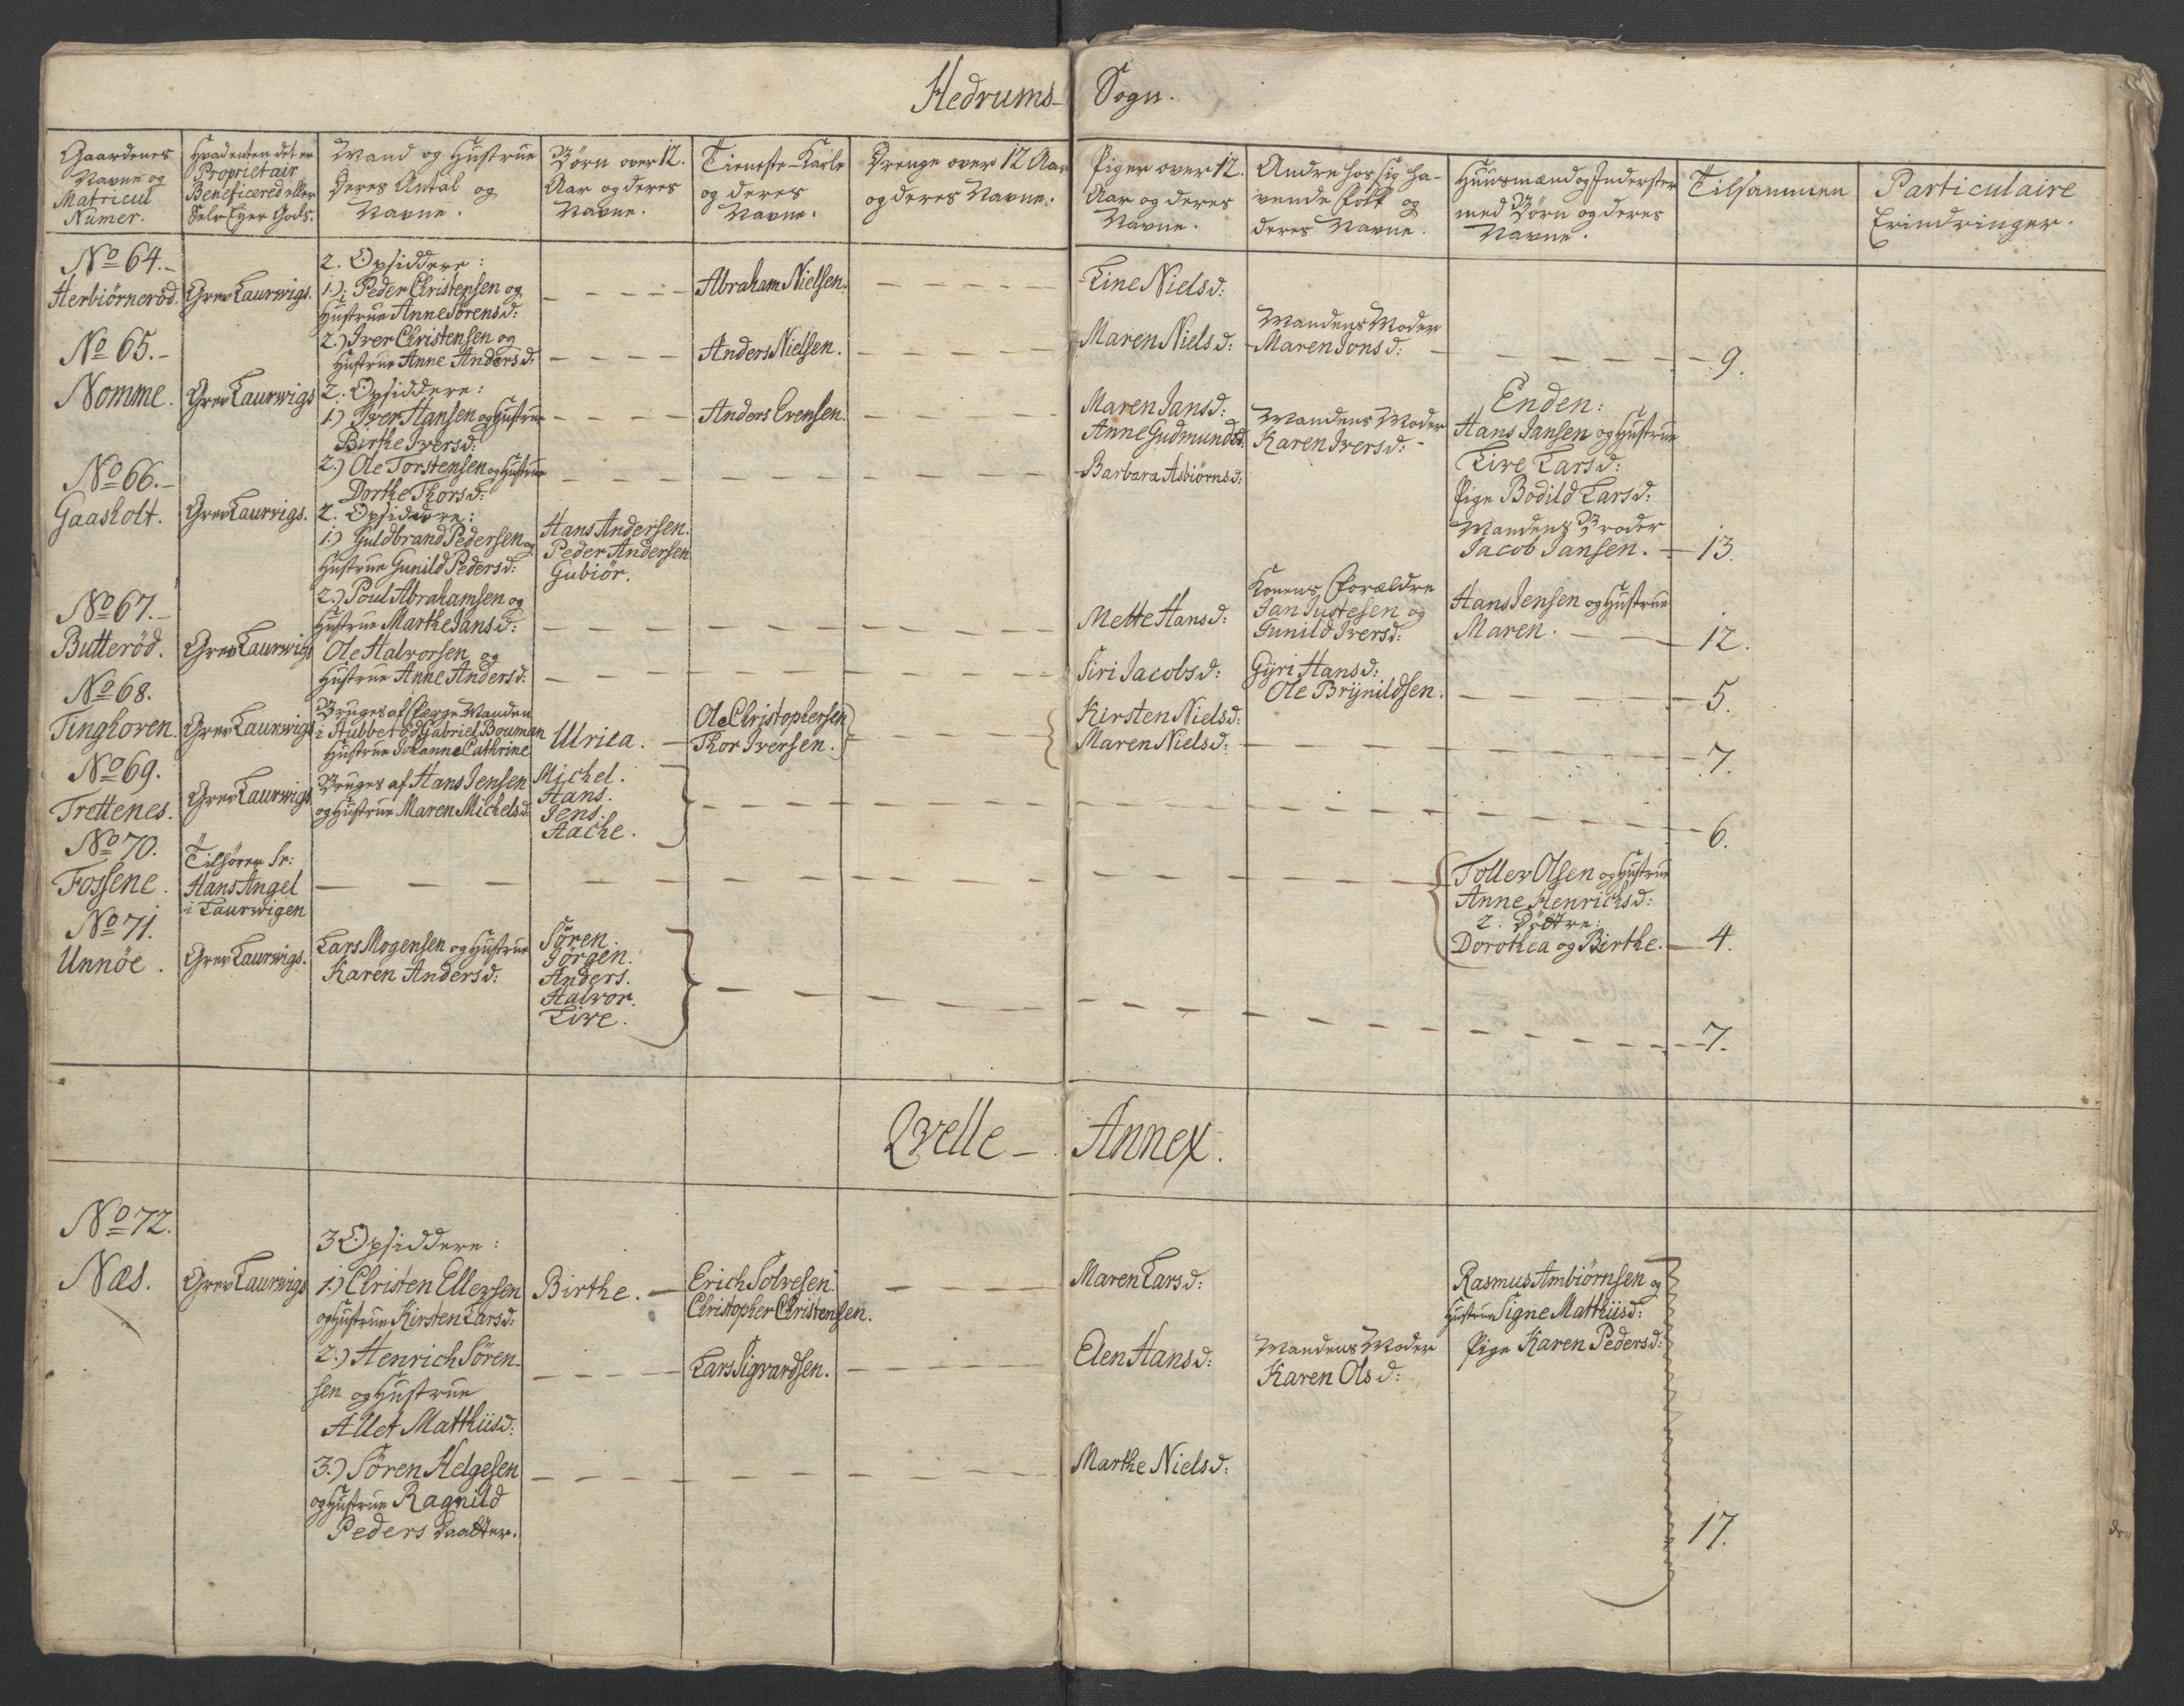 Hedrums- Sogn.
Gaardenes
Navne og
Matricul
Numer.
Hvadenten det er
Proprietair
Beneficered eller
Selv Eyer Gods.
Mand og Hustrue
Deres Antal og
Navne.
Børn over 12.
Aar og deres
Navne.
Tieneste-Karle
og deres
Navne.
Drenge over 12 Aar
og deres Navne.
Piger over 12.
Aar og deres
Navne.
Andre hos sig ha-
vende Folk og
deres Navne.
Huusmænd og Inderster
med Børn og deres
Navne.
Tilsammen
Particulaire
Erindringer.
No 64.-
Herbiørneröd.
Grev Laurwigs.
2. Opsiddere:
1.) Peder Christensen og
Hustrue Anne Sørensd:
Abraham Nielsen.
Line Nielsd:
No 65.-
2.) Iver Christensen og
Hustrue Anne Andersd:
Anders Nielsen.
Maren Nielsd:
Mandens Moder
Maren Jonsd:
9.
Nomme.
Grev Laurwigs
2. Opsiddere:
1.) Iver Hansen og Hustrue
Birthe Iversd:
Anders Evensen.
Maren Jansd:
Anne Gudmundsd:
Mandens Moder
Karen Iversd:
Enden:
Hans Jansen og Hustrue
Live Larsd:
Pige Bodild Larsd:
Mandens Broder
Jacob Jansen.
13.
2.) Ole Torstensen og Hustrue
Dorthe Thorsd:
Barbara Asbiörnsd:
No 66.-
Gaasholt.
Grev Laurvigs.
2. Opsiddere:
1.) Guldbrand Pedersen og
Hustrue Gunild Pedersd:
Hans Andersen.
Peder Andersen
Gubiör.
2.) Poul Abrahamsen og
Hustrue Marthe Jansd:
Mette Hansd:
Konens Forældre
Jan Justesen og
Gunild Iversd:
Hans Jensen og Hustrue
Maren.
12.
No 67.-
Butteröd.
Grev Laurwigs
Ole Halvorsen og
Hustrue Anne Andersd:
Siri Jacobsd:
Gÿri Hansd:
Ole Brÿnildsen.
5.
No 68.
Tinghoven.
Grev Laurwigs
Bruges af Færge Manden
i Hubbet öd Gabriel Bouman
Hustrue Johanne Cathrine
Ulrica.
Ole Christophersen
Thor Iversen.
Kirsten Nielsd:
Maren Nielsd:
7.
No 69.
Trettenes.
Grev Laurwigs
Bruges af Hans Jensen
og Hustrue Maren Michelsd:
Michel.
Hans.
Jens.
Aache.
6.
No 70.
Fossene.
Tilhörer Sr:
Hans Angel
i Laurwigen
Tollev Olsen og Hustrue
Anne Henrichsd:
2. Döttre:
Dorothea og Birthe.
4.
No 71.
Unnöe.
Grev Laurwigs.
Lars Mogensen og Hustrue
Karen Andersd:
Sören.
Jörgen.
Anders.
Halvor.
Live.
7.
Qvelle- Annex.
No 72.
Næs.
Grev Laurwigs
3 Opsiddere:
1.) Christen Ellevsen
og Hustrue Kirsten Larsd:
Birthe.
Erich Solvesen.
Christopher Christensen.
Maren Larsd:
Rasmus Ambiörnsen og
Hustrue Signe Matthiisd:
Pige Karen Pedersd:
2.) Henrich Sören-
sen og Hustrue
Allet Matthiisd:
Lars Sigvardsen.
Elen Hansd:
Mandens Moder
Karen Olsd:
3.) Sören Helgesen
og Hustrue Ragnild
Peders Daatter.
Marthe Nielsd:
17.